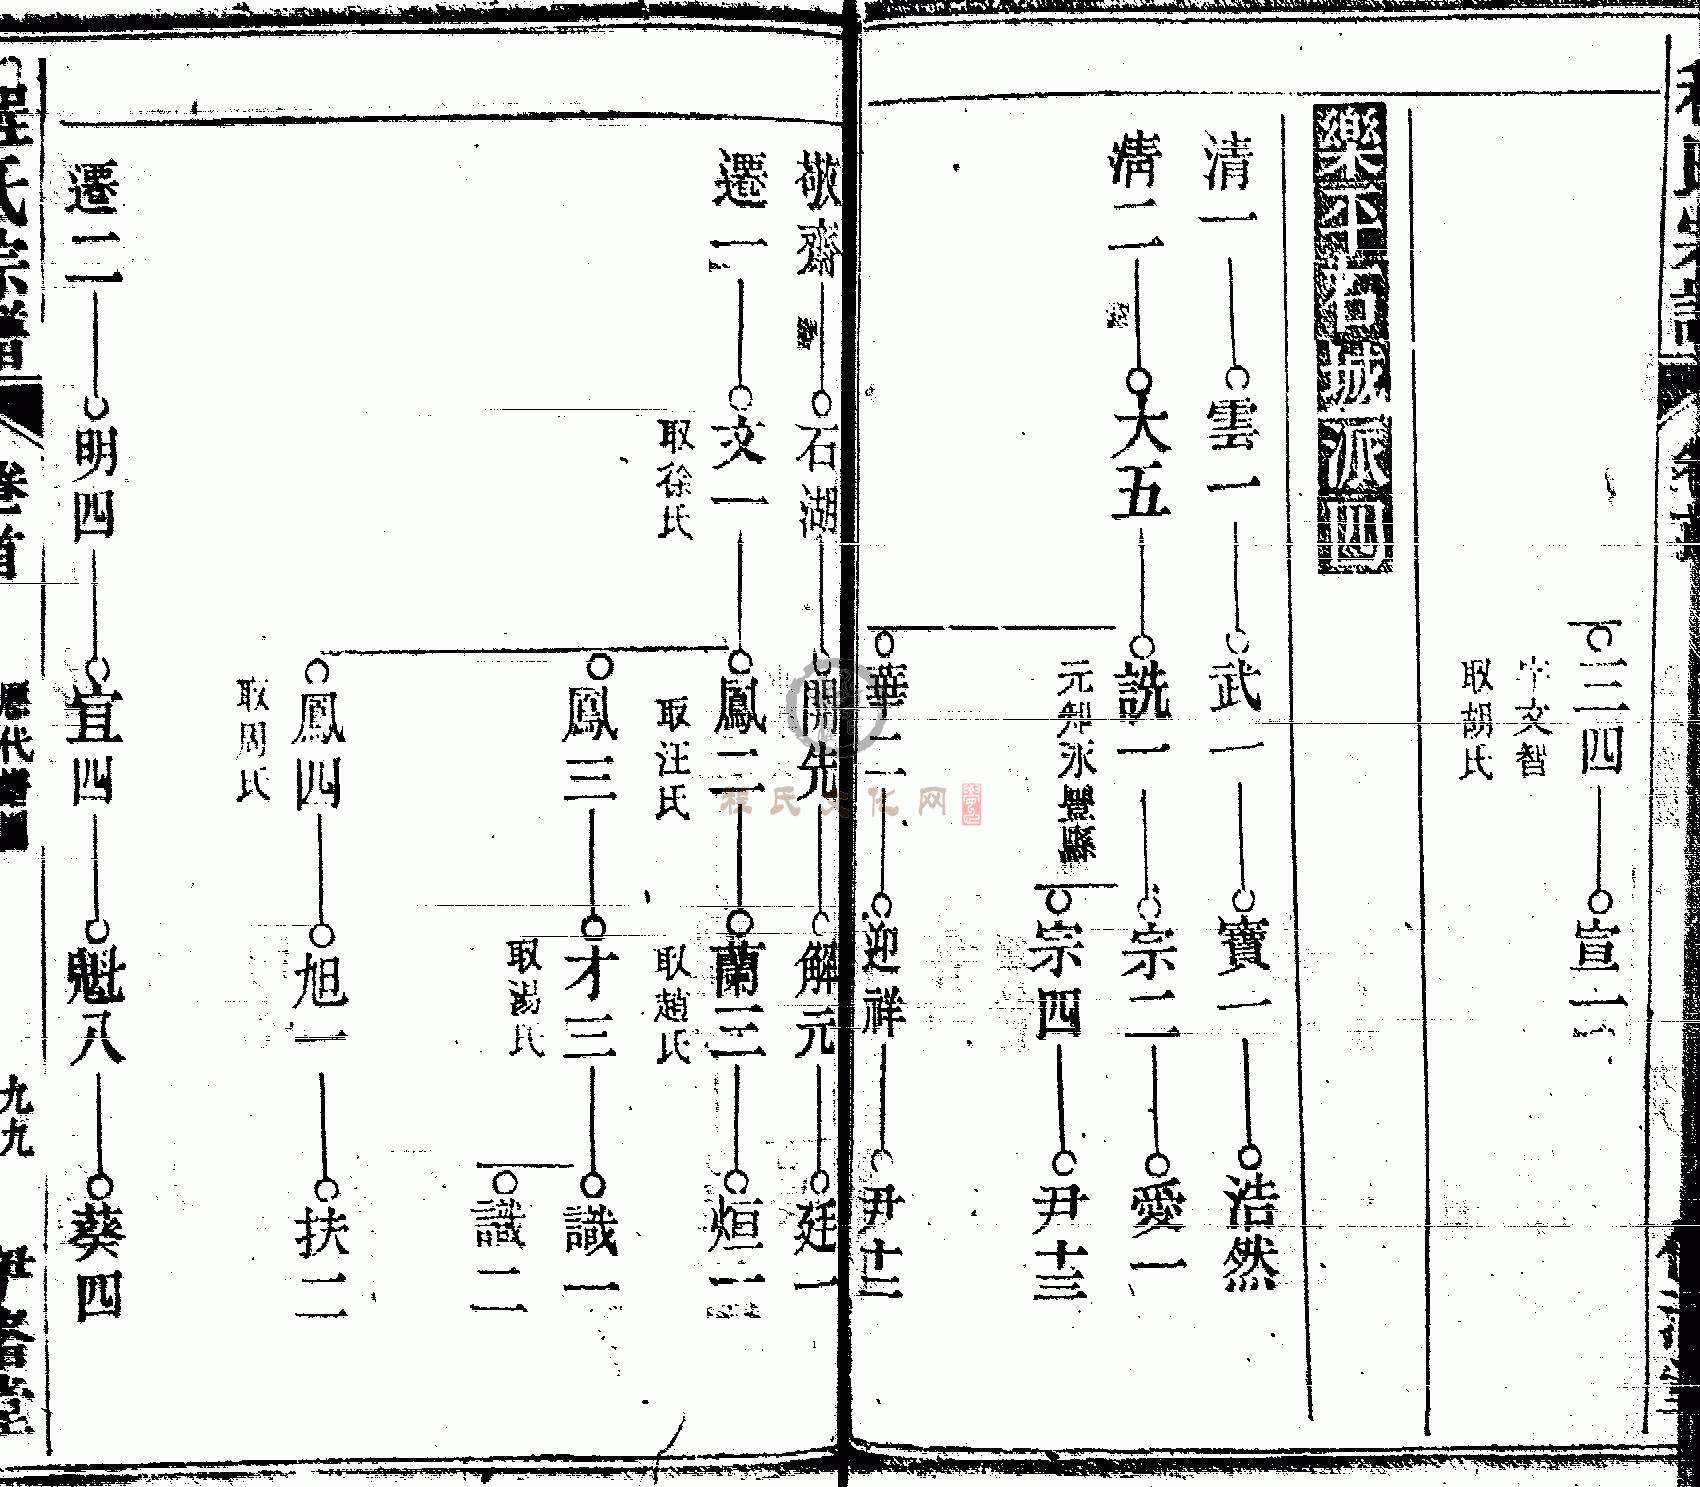 三四
字文智
取胡氏
宣一
樂平古城派四
清一
雲一
武一
寶一
浩然
清二
大五
詵一
元知永豐縣
宗二
愛一
宗四
尹十三
華二
迎祥
尹十二
敬齋
石湖
開先
解元
廷一
遷一
文一
取徐氏
鳳二
取汪氏
蘭三
取趙氏
烜一
鳳三
才三
取湯氏
識一
識二
鳳四
取周氏
旭一
扶二
遷二
明四
宜四
魁八
葵四
程氏宗譜
卷首
九九
程氏文化网